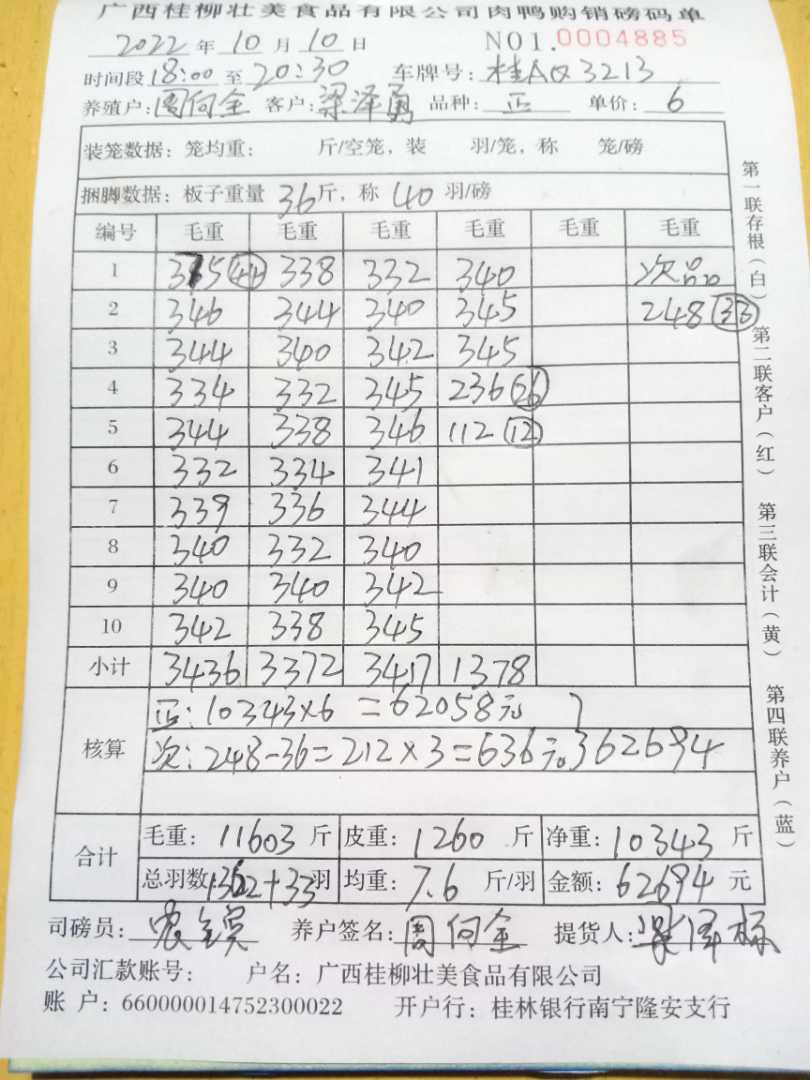 广西桂柳壮美食品有限公司肉鸭购销磅码单
2022 年 10 月 10 日 NO1.0004885
时间段 18:00 至 20:30 车牌号: 桂AQ3213
养殖户: 周何全 客户: 梁泽勇 品种: 正 单价: 6
装笼数据: 笼均重: 斤/空笼, 装 羽/笼, 称 笼/磅
捆脚数据: 板子重量 36 斤, 称 40 羽/磅
编号 毛重 毛重 毛重 毛重 毛重 毛重
1 375 (44) 338 332 340 次品
2 346 344 340 345 248 (33)
3 344 340 342 345
4 334 332 345 236 (26)
5 344 338 346 112 (12)
6 332 334 341
7 339 336 344
8 340 332 340
9 340 340 342
10 342 338 345
小计 3436 3372 3417 1378
核算
正: 10343×6=62058元
次: 248-36=212×3=636元 62694
合计
毛重: 11603 斤 皮重: 1260 斤 净重: 10343 斤
总羽数 1362+33 羽 均重: 7.6 斤/羽 金额: 62694 元
司磅员: 农 养户签名: 周何全 提货人: 梁泽栋
公司汇款账号: 户名: 广西桂柳壮美食品有限公司
账 户: 660000014752300022 开户行: 桂林银行南宁隆安支行
第一联存根(白) 第二联客户(红) 第三联会计(黄) 第四联养户(蓝)